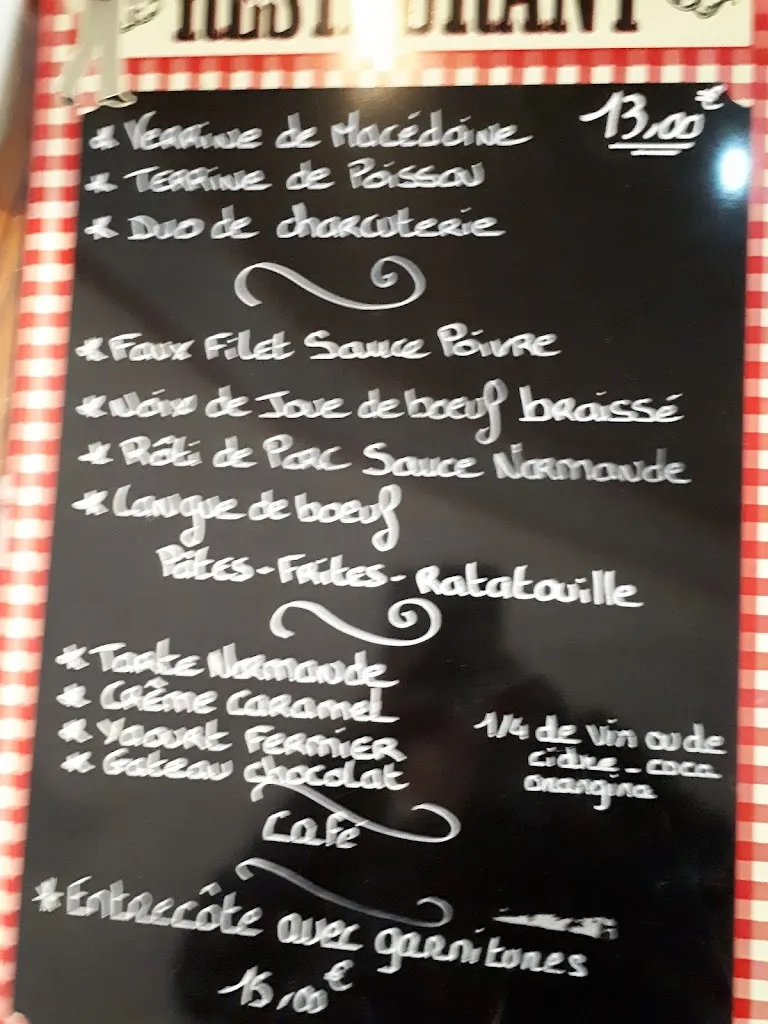 RESTAURANT
13,00€
* Verrine de Macédoine
* Terrine de Poisson
* Duo de charcuterie
* Faux Filet Sauce Poivre
* Noix de Joue de boeuf braissé
* Rôti de Porc Sauce Normande
* Langue de boeuf
Pâtes - Frites - Ratatouille
* Tarte Normande
* Crême Caramel
* Yaourt Fermier
* Gateau chocolat
1/4 de vin ou de
cidre - coca
orangina
Café
* Entrecôte avec garnitures
15,00€